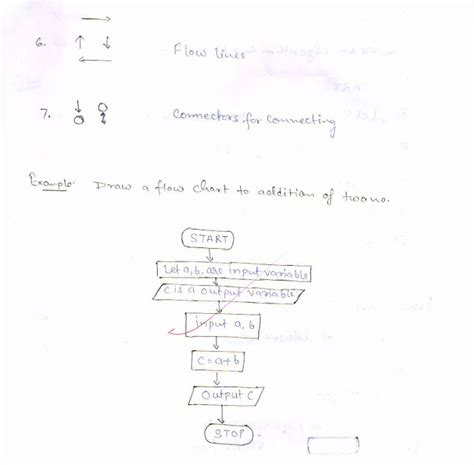 6. Flow lines
7. Connectors for connecting
Example: Draw a flow chart to addition of two no.
START
Let a, b, are input variable
c is a output variable
input a, b
c = a + b
Output C
STOP